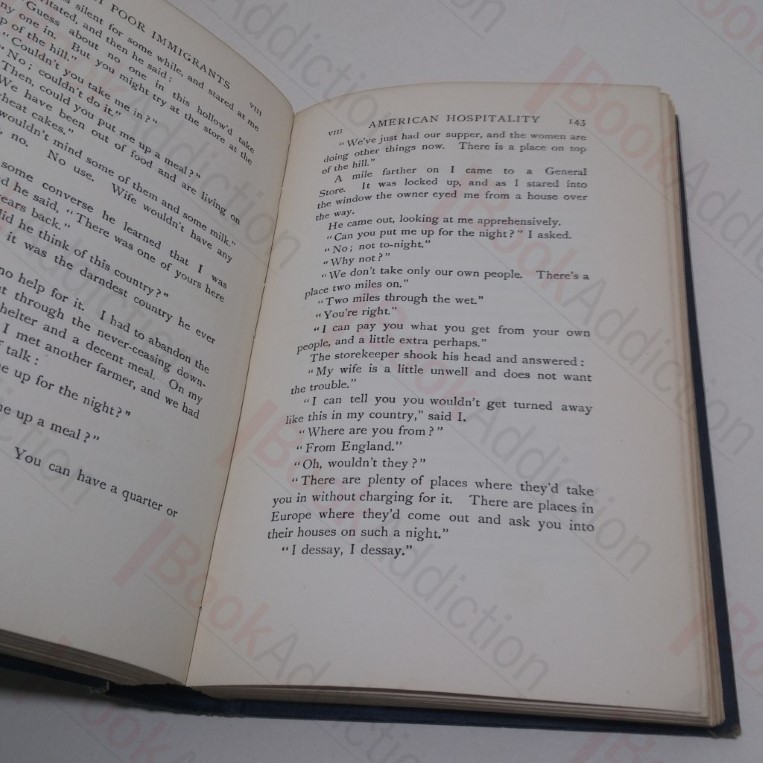 POOR IMMIGRANTS VIII
silent for some while, and stared at me
and then he said:
"Guess about no one in this hollow'd take
any one in. But you might try at the store at the
of the hill."
"Couldn't you take me in?"
"No; couldn't do it."
"Then, could you put me up a meal?"
We have been out of food and are living on
cakes."
wouldn't mind some of them and some milk."
no. No use. Wife wouldn't have any
some converse he learned that I was
he said, "There was one of yours here
years back."
did he think of this country?"
it was the darndest country he ever
no help for it. I had to abandon the
through the never-ceasing down-
shelter and a decent meal. On my
I met another farmer, and we had
talk:
me up for the night?"
me up a meal?"
You can have a quarter or
VIII AMERICAN HOSPITALITY 143
"We've just had our supper, and the women are
doing other things now. There is a place on top
of the hill."
A mile farther on I came to a General
Store. It was locked up, and as I stared into
the window the owner eyed me from a house over
the way.
He came out, looking at me apprehensively.
"Can you put me up for the night?" I asked.
"No; not to-night."
"Why not?"
"We don't take only our own people. There's a
place two miles on."
"Two miles through the wet."
"You're right."
"I can pay you what you get from your own
people, and a little extra perhaps."
The storekeeper shook his head and answered:
"My wife is a little unwell and does not want
the trouble."
"I can tell you you wouldn't get turned away
like this in my country," said I.
"Where are you from?"
"From England."
"Oh, wouldn't they?"
"There are plenty of places where they'd take
you in without charging for it. There are places in
Europe where they'd come out and ask you into
their houses on such a night."
"I dessay, I dessay."
BookAddiction